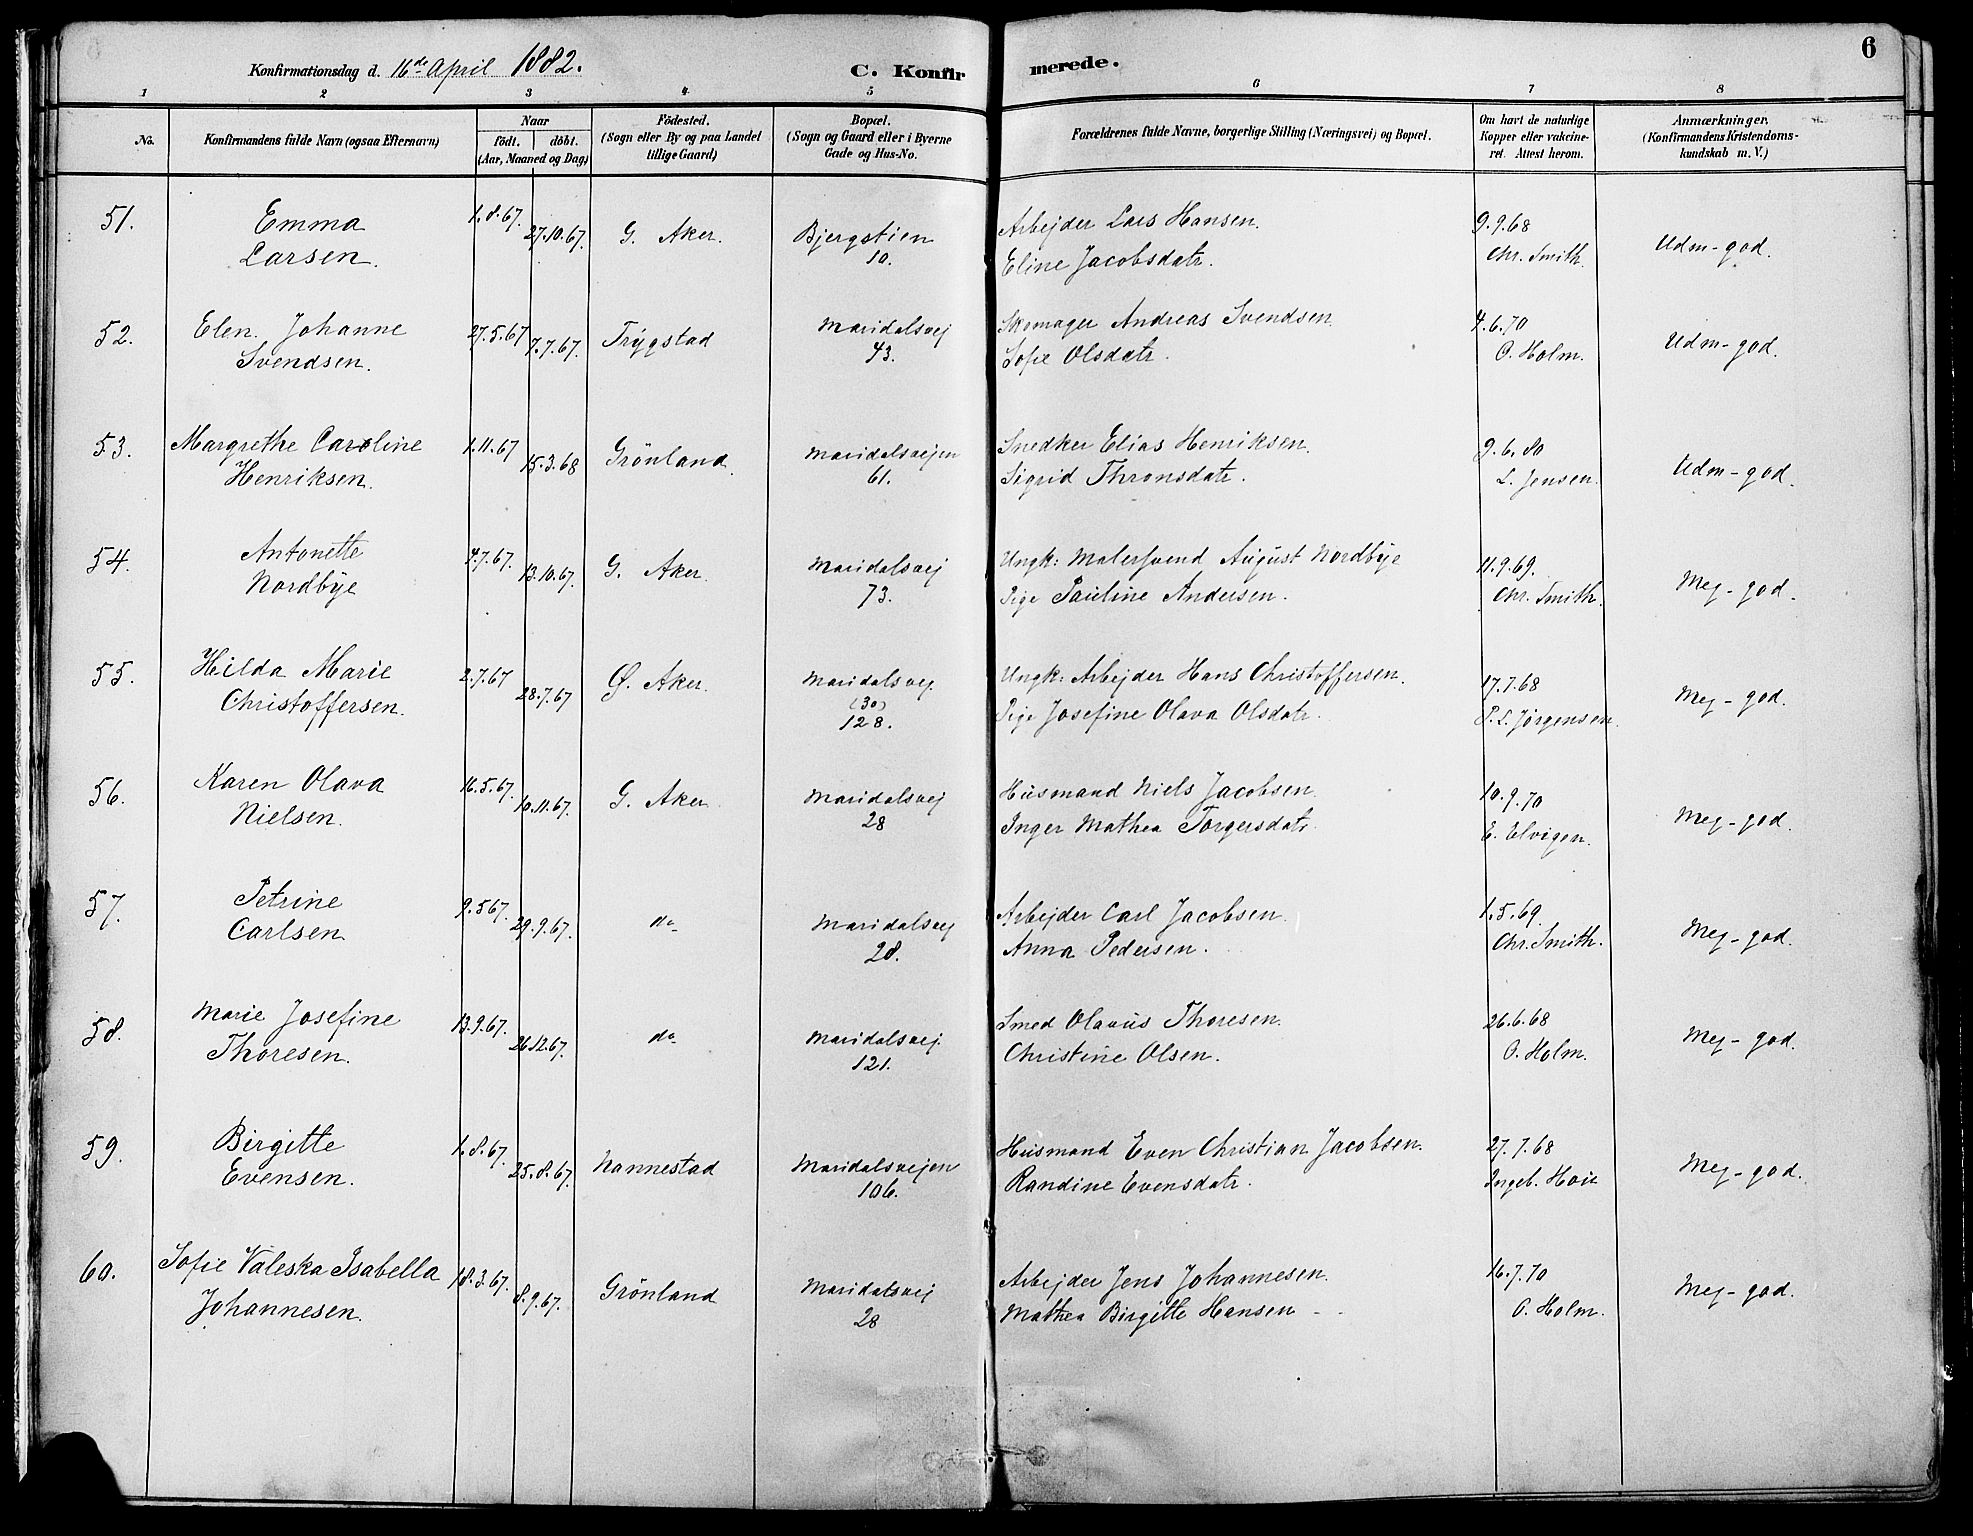 6
Konfirmationsdag d. 16de April 1882.
C. Konfirmerede.
1 2 3 4 5 6 7 8
No.
Konfirmandens fulde Navn (ogsaa Efternavn)
Naar
født. døbt.
(Aar, Maaned og Dag)
Födested.
(Sogn eller By og paa Landet
tillige Gaard)
Bopæl.
(Sogn og Gaard eller i Byerne
Gade og Hus-No.
Forældrenes fulde Navne, borgerlige Stilling (Næringsvei) og Bopæl.
Om havt de naturlige
Kopper eller vakcine-
ret. Attest herom.
Anmærkninger.
(Konfirmandens Kristendoms-
kundskab m. V.)
51. Emma 1.8.67. 27.10.67. G. Aker. Bjergstien Arbejder Lars Hansen. 9.9.68 Udm-god.
Larsen. 10. Eline Jacobsdatr. Chr. Smith.
52. Elen Johanne 27.5.67 7.7.67. Trygstad Maridalsvej Skomager Andreas Svendsen 4.6.70 Udm-god.
Svendsen. 43. Sofie Olsdatr. O. Holm.
53. Margrethe Caroline 1.11.67 15.3.68 Grönland. Maridalsvejen Snedker Elias Henriksen. 9.6.80 Udm-god.
Henriksen. 61. Sigrid Thronsdatr. L. Jensen.
54. Antonette 4.7.67. 13.10.67. G. Aker. Maridalsvej Ungk: Malersvend August Nordbye 11.9.69. Meg-god.
Nordbye 73. Pige Pauline Andersen. Chr. Smith.
55. Hilda Marie 2.7.67 28.7.67 Ø. Aker. Maridalsvej. Ungk: Arbejder Hans Christoffersen. 17.7.68 Meg-god.
Christoffersen. (30) 128. Pige Josefine Olava Olsdatr. P.L. Jørgensen.
56. Karen Olava 16.5.67. 10.11.67. G. Aker Maridalsvej Husmand Niels Jacobsen 10.9.70 Meg-god.
Nielsen. 28 Inger Mathea Torgersdatr. E. Elvigen.
57. Petrine 9.567. 29.9.67. do Maridalsvej Arbejder Carl Jacobsen. 1.5.69. Meg-god.
Carlsen. 28. Anna Pedersen. Chr. Smith.
58. Marie Josefine 13.9.67. 26.12.67. do Maridalsvej. Smed Olavus Thoresen. 26.6.68 Meg-god.
Thoresen. 121. Christine Olsen. O. Holm.
59. Birgitte 1.8.67. 25.8.67. Nannestad Maridalsvejen Husmand Even Christian Jacobsen. 27.7.68 Meg-god.
Evensen. 106. Randine Evensdatr. Ingeb. Hoie
60. Sofie Valeska Isabella 18.3.67. 8.9.67. Grönland Maridalsvej Arbejder Jens Johannesen. 16.7.70 Meg-god.
Johannesen. 28 Mathea Birgitte Hansen O. Holm.